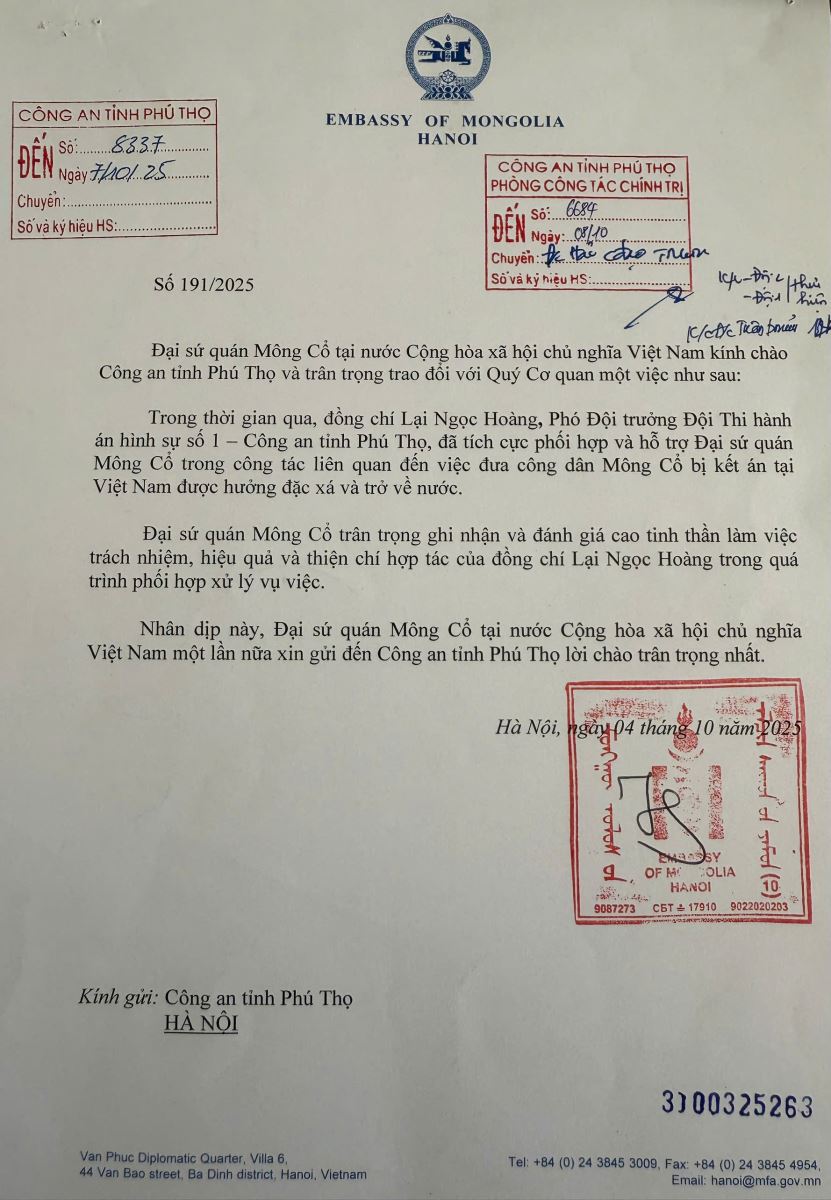 EMBASSY OF MONGOLIA
HANOI
CÔNG AN TỈNH PHÚ THỌ
ĐẾN
Số: 8337
Ngày 7/10/25
Chuyển:
Số và ký hiệu HS:
CÔNG AN TỈNH PHÚ THỌ
PHÒNG CÔNG TÁC CHÍNH TRỊ
ĐẾN
Số: 6684
Ngày: 08/10
Chuyển:
Số và ký hiệu HS:
Số 191/2025
Đại sứ quán Mông Cổ tại nước Cộng hòa xã hội chủ nghĩa Việt Nam kính chào
Công an tỉnh Phú Thọ và trân trọng trao đổi với Quý Cơ quan một việc như sau:
Trong thời gian qua, đồng chí Lại Ngọc Hoàng, Phó Đội trưởng Đội Thi hành
án hình sự số 1 – Công an tỉnh Phú Thọ, đã tích cực phối hợp và hỗ trợ Đại sứ quán
Mông Cổ trong công tác liên quan đến việc đưa công dân Mông Cổ bị kết án tại
Việt Nam được hưởng đặc xá và trở về nước.
Đại sứ quán Mông Cổ trân trọng ghi nhận và đánh giá cao tinh thần làm việc
trách nhiệm, hiệu quả và thiện chí hợp tác của đồng chí Lại Ngọc Hoàng trong quá
trình phối hợp xử lý vụ việc.
Nhân dịp này, Đại sứ quán Mông Cổ tại nước Cộng hòa xã hội chủ nghĩa
Việt Nam một lần nữa xin gửi đến Công an tỉnh Phú Thọ lời chào trân trọng nhất.
Hà Nội, ngày 04 tháng 10 năm 2025
EMBASSY
OF MONGOLIA
HANOI
(10)
9087273 СБТ 17910 9022020203
Kính gửi: Công an tỉnh Phú Thọ
HÀ NỘI
3)00325263
Van Phuc Diplomatic Quarter, Villa 6,
44 Van Bao street, Ba Dinh district, Hanoi, Vietnam
Tel: +84 (0) 24 3845 3009, Fax: +84 (0) 24 3845 4954,
Email: hanoi@mfa.gov.mn